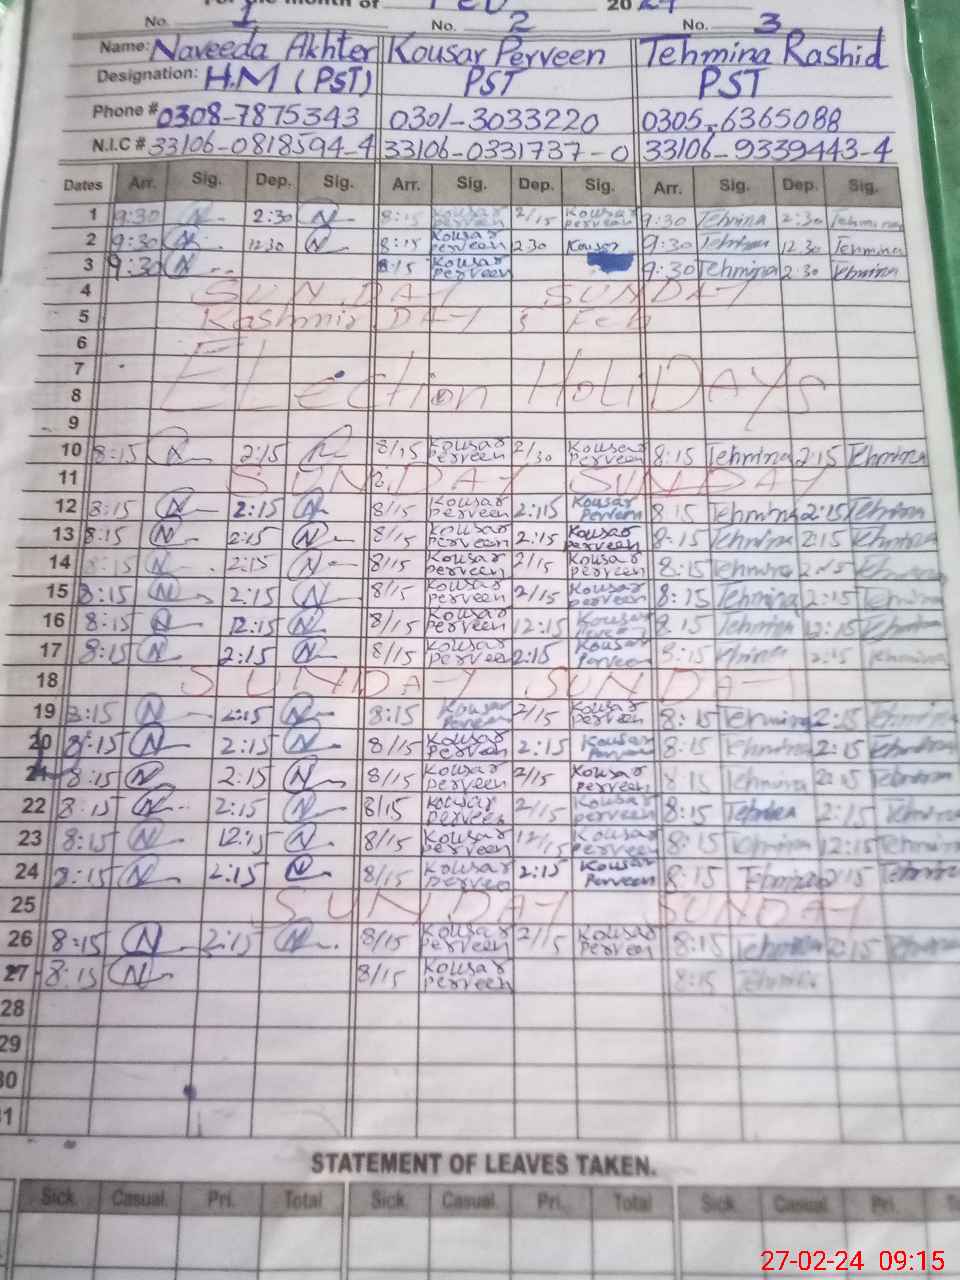 For the month of Feb 2024
No. 1 No. 2 No. 3
Name: Naveeda Akhter Kousar Perveen Tehmina Rashid
Designation: H.M (PST) PST PST
Phone # 0308-7875343 0301-3033220 0305-6365088
N.I.C # 33106-0818594-4 33106-0331737-0 33106-9339443-4
Dates Arr. Sig. Dep. Sig. Arr. Sig. Dep. Sig. Arr. Sig. Dep. Sig.
1 9:30 N 2:30 N 8:15 Kousar Perveen 2/15 Kousar Perveen 9:30 Tehmina 2:30 Tehmina
2 9:30 N 12:30 N 8:15 Kousar Perveen 2:30 Kousar 9:30 Tehmina 12:30 Tehmina
3 9:30 N 8:15 Kousar Perveen 9:30 Tehmina 2:30 Tehmina
4 SUNDAY SUNDAY
5 Kashmir DAY 5 Feb
6
7
8 Election HoLiDAYS
9
10 8:15 N 2:15 N 8/15 Kousar Perveen 2/30 Kousar Perveen 8:15 Tehmina 2:15 Tehmina
11 SUNDAY SUNDAY
12 8:15 N 2:15 N 8/15 Kousar Perveen 2:15 Kousar Perveen 8:15 Tehmina 2:15 Tehmina
13 8:15 N 2:15 N 8/15 Kousar Perveen 2:15 Kousar Perveen 8:15 Tehmina 2:15 Tehmina
14 8:15 N 2:15 N 8/15 Kousar Perveen 2/15 Kousar Perveen 8:15 Tehmina 2:15 Tehmina
15 8:15 N 2:15 N 8/15 Kousar Perveen 2/15 Kousar Perveen 8:15 Tehmina 2:15 Tehmina
16 8:15 N 12:15 N 8/15 Kousar Perveen 12:15 Kousar 8:15 Tehmina 12:15 Tehmina
17 8:15 N 2:15 N 8/15 Kousar Perveen 2:15 Kousar Perveen 8:15 Tehmina 2:15 Tehmina
18 SUNDAY SUNDAY
19 8:15 N 2:15 N 8:15 Kousar Perveen 2/15 Kousar Perveen 8:15 Tehmina 2:15 Tehmina
20 8:15 N 2:15 N 8/15 Kousar Perveen 2:15 Kousar Perveen 8:15 Tehmina 2:15 Tehmina
21 8:15 N 2:15 N 8/15 Kousar Perveen 2/15 Kousar Perveen 8:15 Tehmina 2:15 Tehmina
22 8:15 N 2:15 N 8/15 Kousar Perveen 2/15 Kousar Perveen 8:15 Tehmina 2:15 Tehmina
23 8:15 N 12:15 N 8/15 Kousar Perveen 12/15 Kousar Perveen 8:15 Tehmina 12:15 Tehmina
24 8:15 N 2:15 N 8/15 Kousar Perveen 2:15 Kousar Perveen 8:15 Tehmina 2:15 Tehmina
25 SUNDAY SUNDAY
26 8:15 N 2:15 N 8/15 Kousar Perveen 2/15 Kousar Perveen 8:15 Tehmina 2:15 Tehmina
27 8:15 N 8/15 Kousar Perveen 8:15 Tehmina
28
29
30
31
STATEMENT OF LEAVES TAKEN.
Sick. Casual. Pri. Total Sick. Casual. Pri. Total Sick. Casual. Pri.
27-02-24 09:15